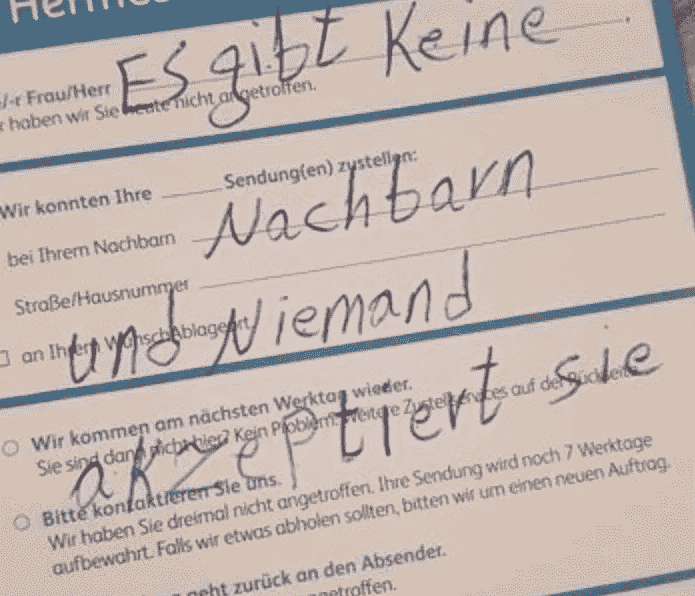 Hermes
Es gibt Keine
/-r Frau/Herr
r haben wir Sie heute nicht angetroffen.
Wir konnten Ihre ____ Sendung(en) zustellen:
bei Ihrem Nachbarn
Nachbarn
Straße/Hausnummer
an Ihrem Wunschablageort
und Niemand
Wir kommen am nächsten Werktag wieder.
Sie sind dann nicht hier? Kein Problem. Weitere auf der Rückseite
akzeptiert sie
Bitte kontaktieren Sie uns.
Wir haben Sie dreimal nicht angetroffen. Ihre Sendung wird noch 7 Werktage
aufbewahrt. Falls wir etwas abholen sollten, bitten wir um einen neuen Auftrag.
geht zurück an den Absender.
getroffen.